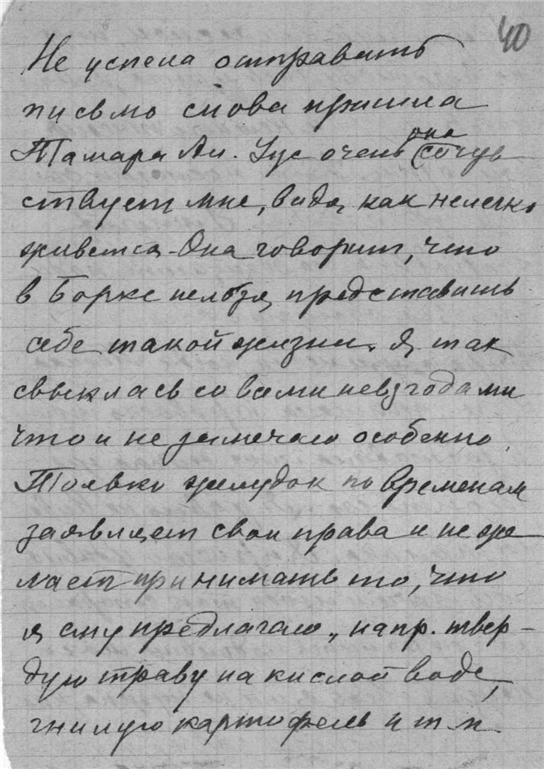 40
Не успела отправить
письмо снова пришла
Тамара Ан. Гус очень она сочув
ствует мне, видя, как нелегко
живется. Она говорит, что
в Борке нельзя представить
себе такой жизни. Я так
свыклась со всеми невзгодами
что и не замечаю особенно.
Только желудок по временам
заявляет свои права и не же
лает принимать то, что
я ему предлагаю, напр. твер-
дую траву на кислой воде,
гнилую картофель и т.п.